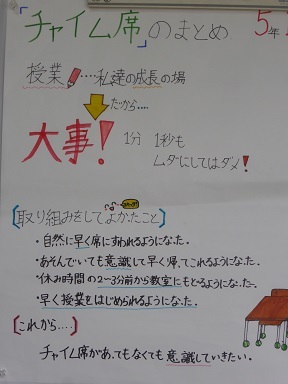 「チャイム席」のまとめ 5年
授業 ‥‥私達の成長の場
だから‥‥
大事! 1分 1秒も
ムダにしてはダメ!
[取り組みをしてよかったこと]
・自然に早く席にすわれるようになった。
・あそんでいても意識して早く帰ってこれるようになった。
・休み時間の2〜3分前から教室にもどるようになった。
・早く授業をはじめられるようになった。
[これから‥‥]
チャイム席があってもなくても意識していきたい。